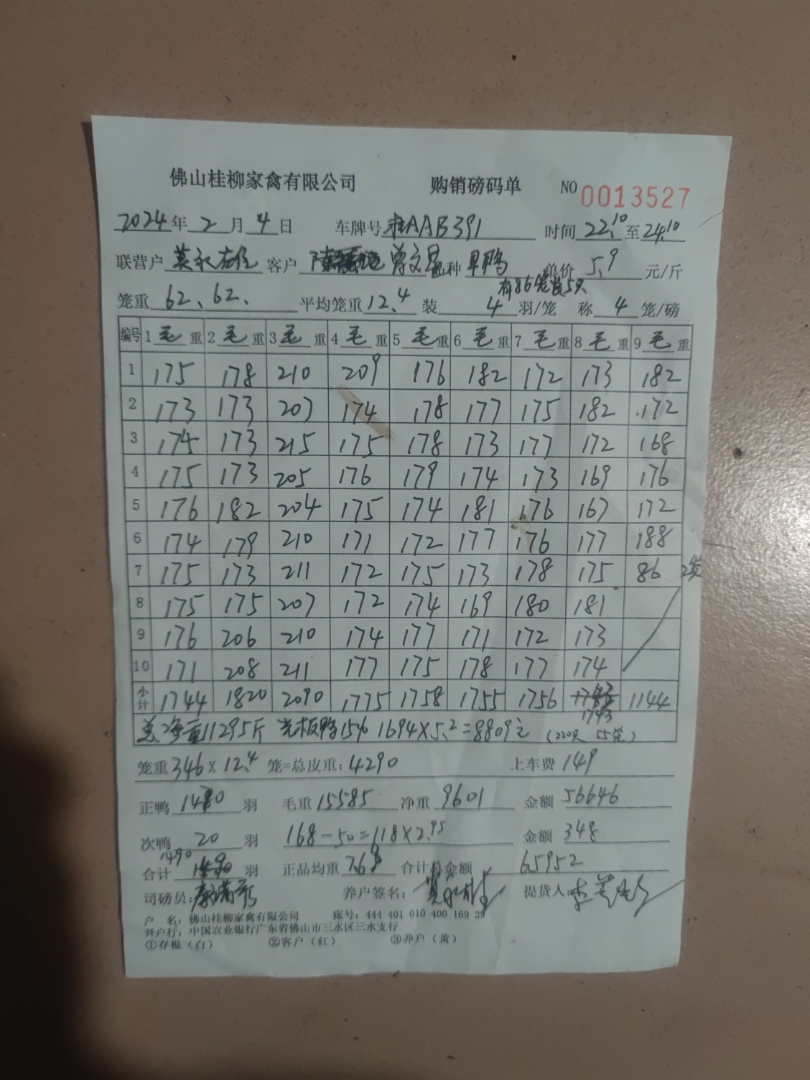 佛山桂柳家禽有限公司 购销磅码单 NO 0013527
2024年2月4日 车牌号 桂AAB391 时间 22.10 至 24.10
联营户 莫永雄 客户 曾文 种 旱鸭 单价 5.9 元/斤
有86笼装5只
笼重 62、62、 平均笼重 12.4 装 4 羽/笼 称 4 笼/磅
编号 1毛重 2毛重 3毛重 4毛重 5毛重 6毛重 7毛重 8毛重 9毛重
1 175 178 210 209 176 182 172 173 182
2 173 173 207 174 178 177 175 182 172
3 174 173 215 175 178 173 177 172 168
4 175 173 205 176 179 174 173 169 176
5 176 182 204 175 174 181 176 167 172
6 174 179 210 171 172 177 176 177 188
7 175 173 211 172 175 173 178 175 86 2笼
8 175 175 207 172 174 169 180 181
9 176 206 210 174 177 171 172 173
10 171 208 211 177 175 178 177 174
小计 1744 1820 2090 1775 1758 1755 1756 1743 1144
总净重11295斤 光板鸭15% 1694×5.2=8809元 (220只 55笼)
笼重 346 × 12.4 笼=总皮重: 4290 上车费 149
正鸭 1470 羽 毛重 15585 净重 9601 金额 56646
次鸭 20 羽 168-50=118×2.95 金额 348
合计 1490 羽 正品均重 7.68 合计总金额 65952
司磅员: 养户签名: 提货人:
户 名: 佛山桂柳家禽有限公司 账号: 444 401 010 400 169 29
开户行: 中国农业银行广东省佛山市三水区三水支行
①存根(白) ②客户(红) ③养户(黄)